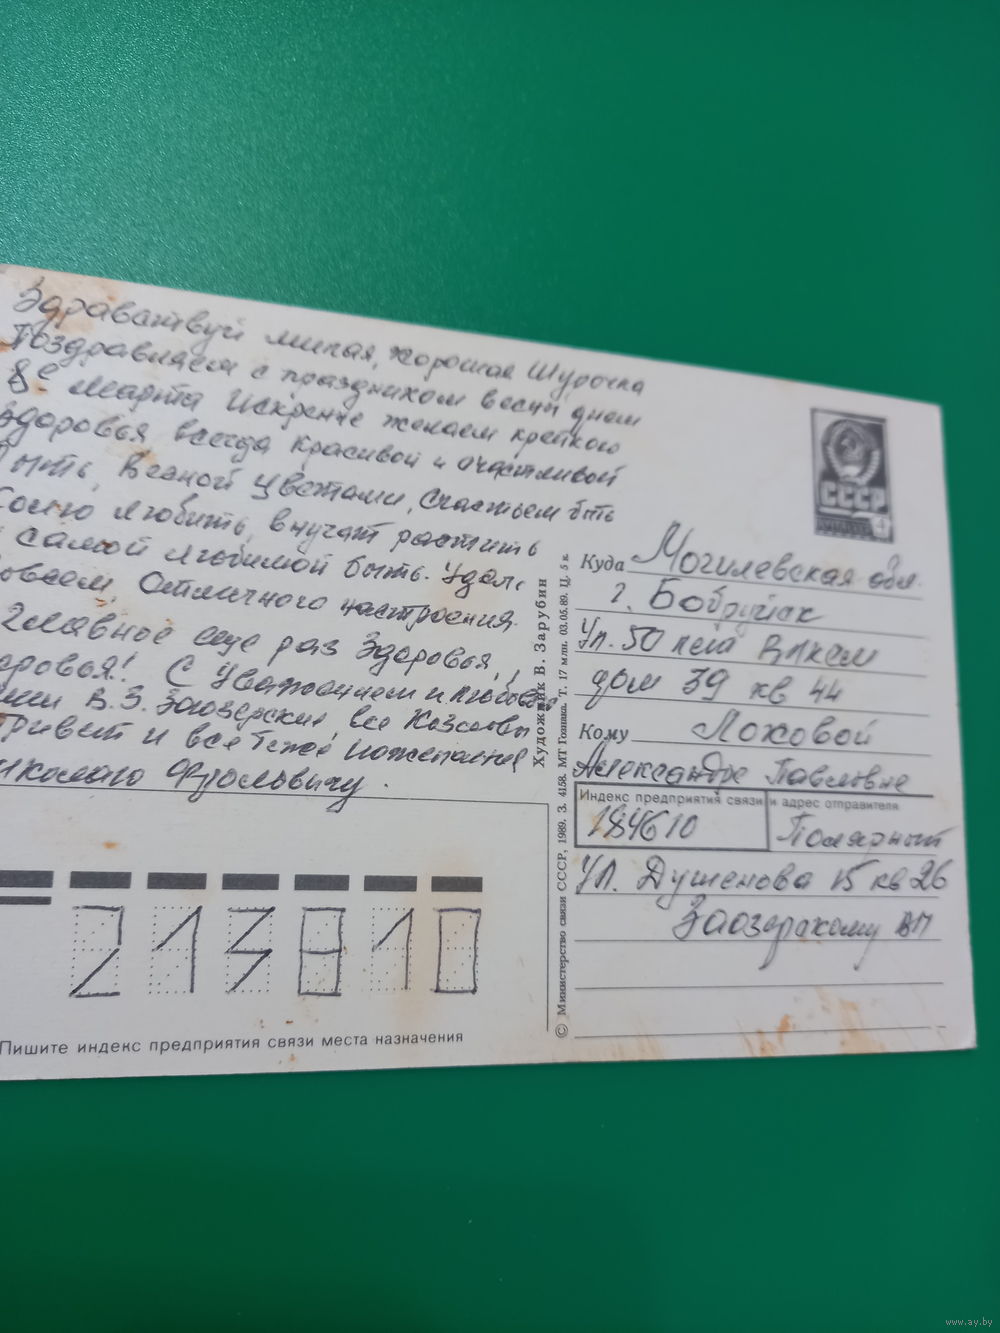 Здраваствуй милая, хорошая Шурочка
Поздравляем с праздником весны днем
8е марта Искрене желаем крепкого
здоровья всегда красивой и счастливой
быть, Весной цветами, счастьем быть
любить, внучат растить
самой любимой быть.
Отличного настроения.
Главное еще раз Здоровья,
С Уважением и любовью
В. З. Заозерские, все Козловы
и все
Фроловичу.
Художник В. Зарубин
© Министерство связи СССР, 1989. З. 4158. МТ Гознака. Т. 17 млн. 03.05.89. Ц. 5 к.
СССР
4
Куда Могилевская обл.
г. Бобруйск
Ул. 50 лет Влксм
дом 39 кв 44
Кому Лоховой
Александре Павловне
Индекс предприятия связи и адрес отправителя
184610 Полярный
Ул. Душенова 15 кв 26
Заозерскому ВП
213810
Пишите индекс предприятия связи места назначения
www.ay.by